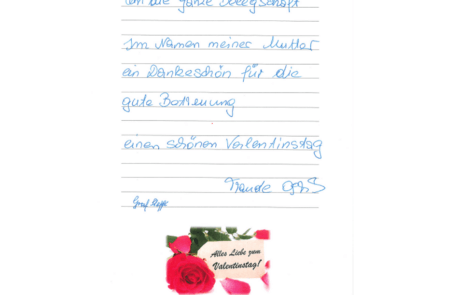 an die ganze Belegschaft
Im Namen meiner Mutter
ein Dankeschön für die
gute Betreuung
einen schönen Valentinstag
Alles Liebe zum
Valentinstag!